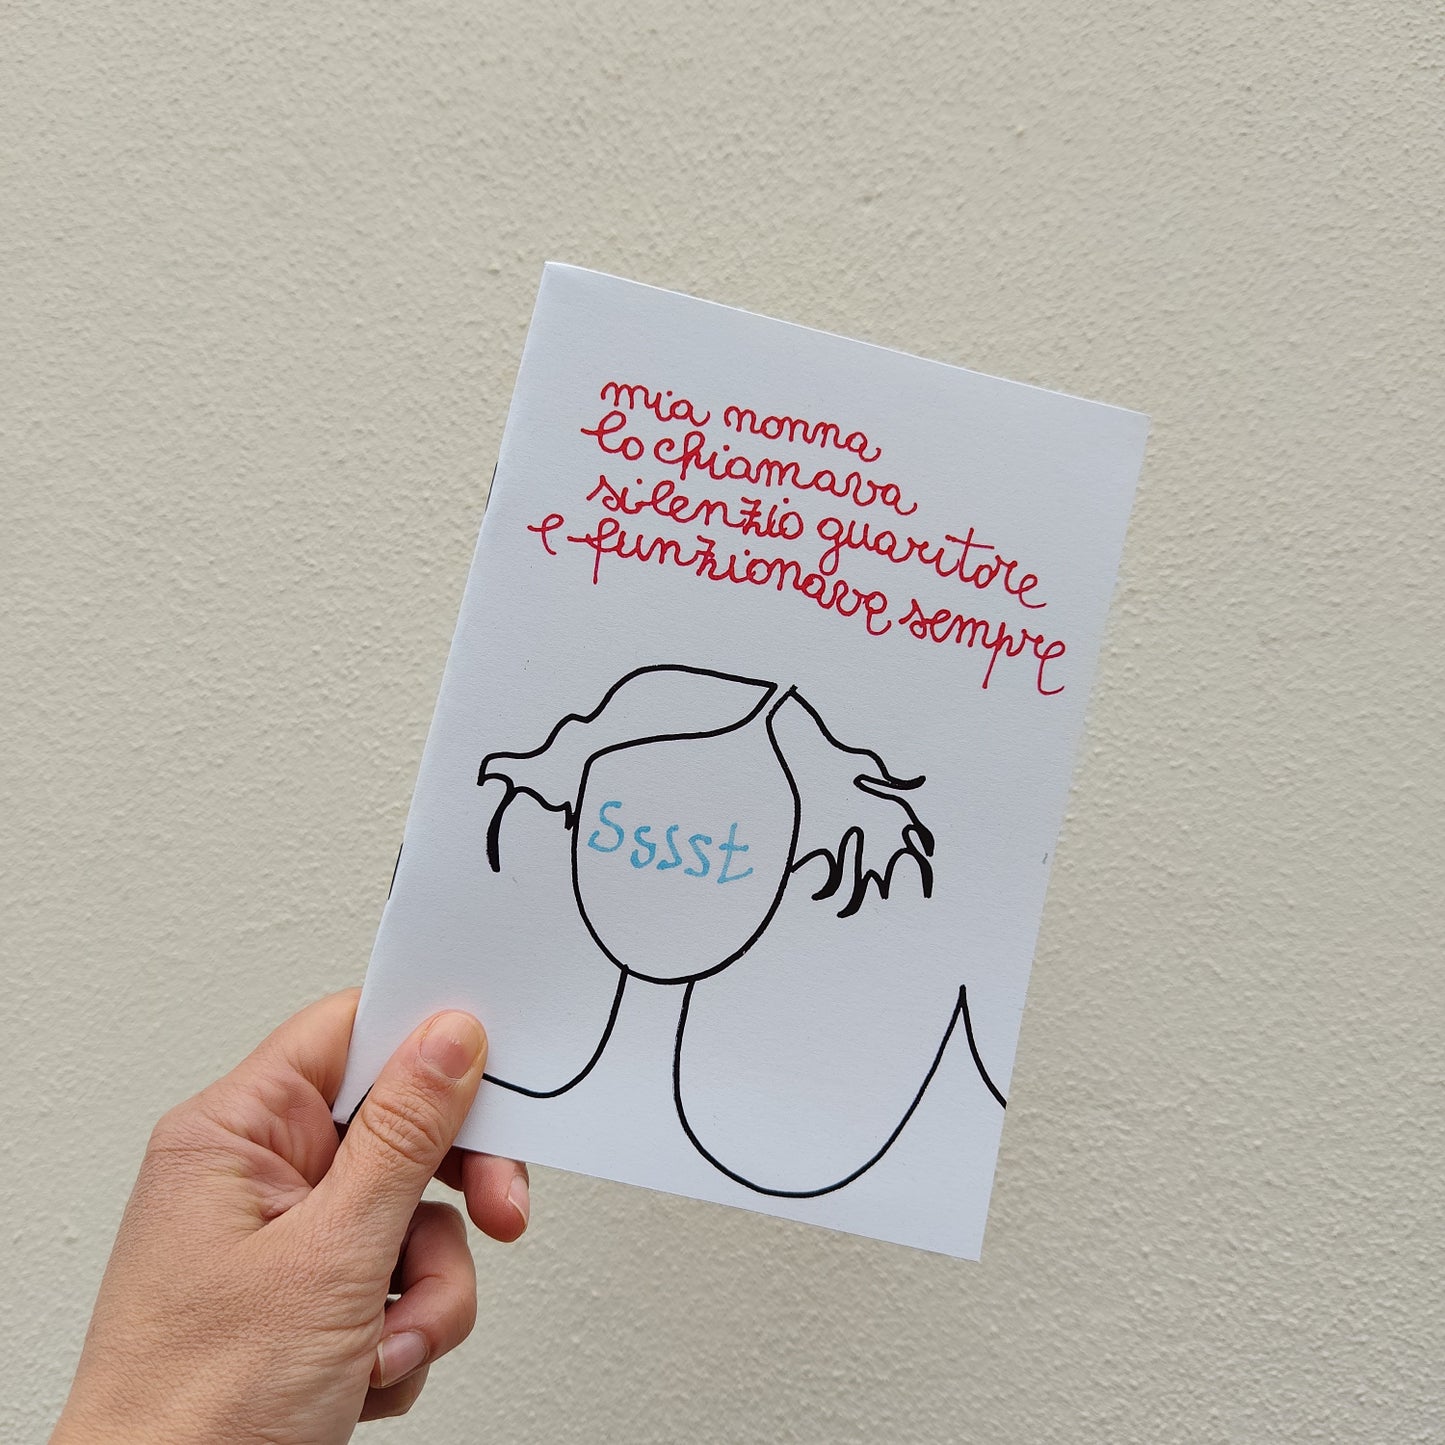 mia nonna
lo chiamava
silenzio guaritore
e funzionava sempre
Sssst